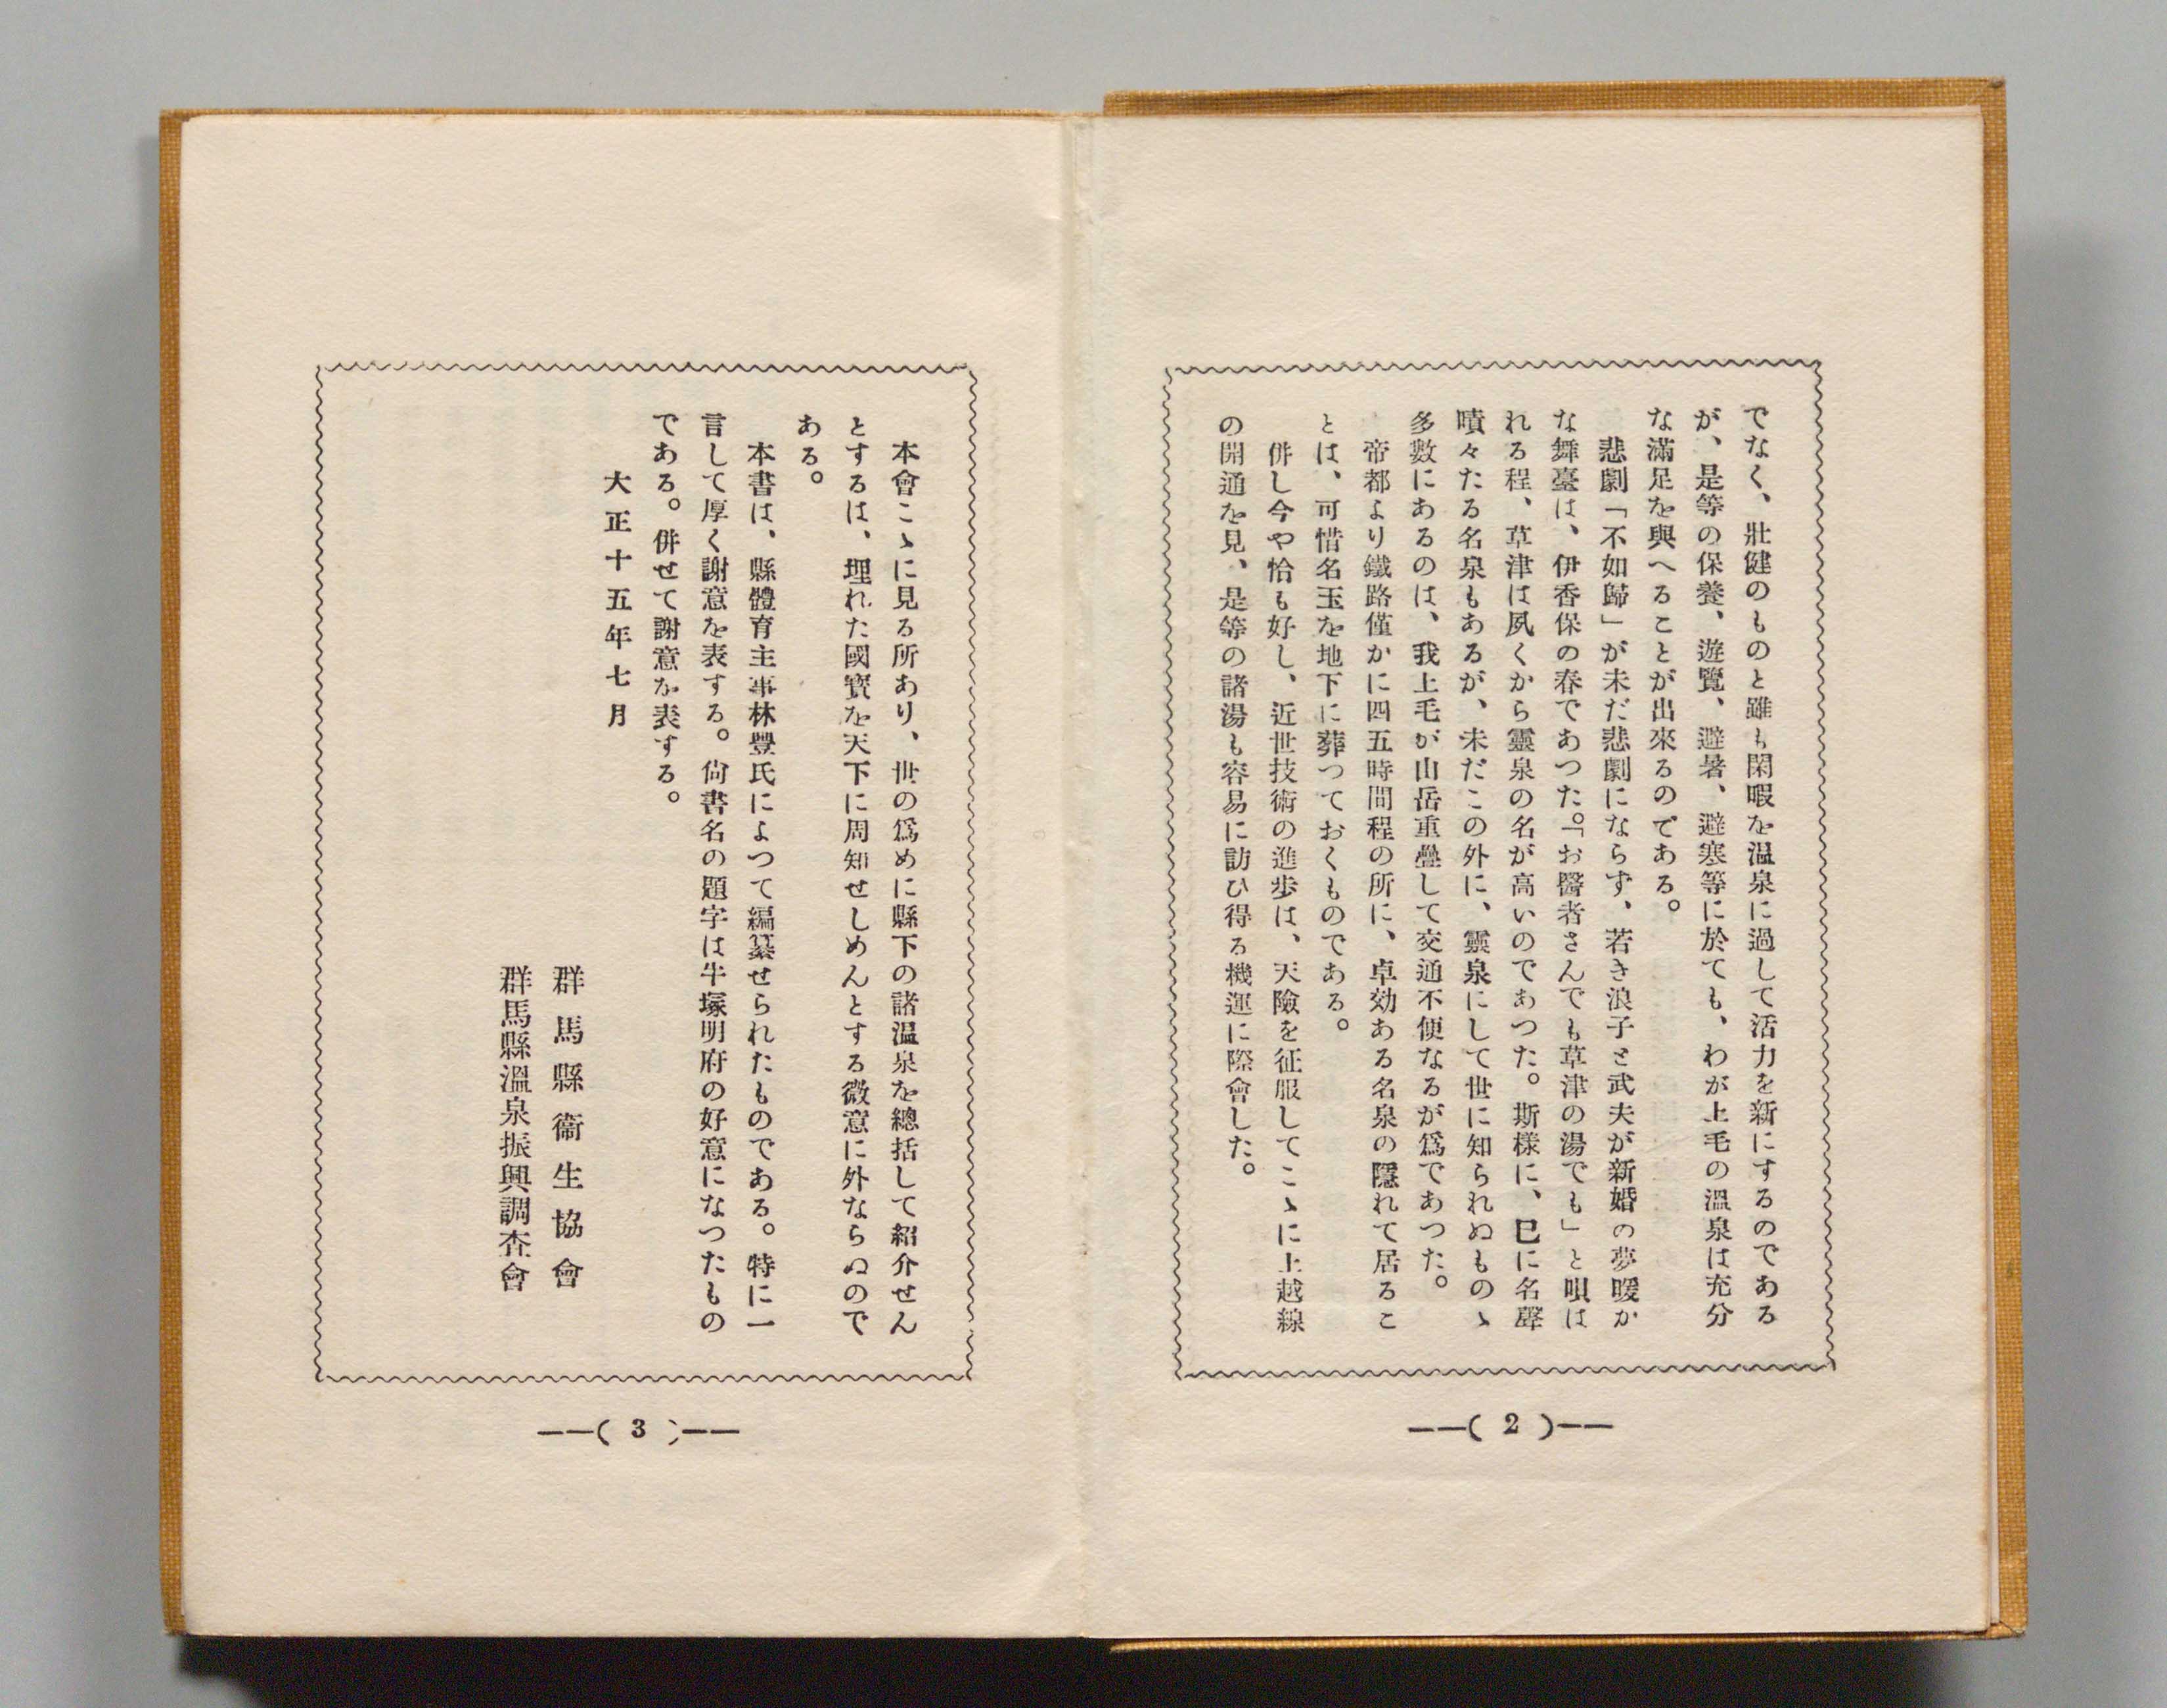 でなく、壯健のものと雖も閑暇を温泉に過して活力を新にするのである
が、是等の保養、遊覽、避暑、避寒等に於ても、わが上毛の溫泉は充分
な滿足を與へることが出來るのである。
悲劇「不如歸」が未だ悲劇にならず、若き浪子と武夫が新婚の夢暖か
な舞臺は、伊香保の春であつた。「お醫者さんでも草津の湯でも」と唄は
れる程、草津は夙くから靈泉の名が高いのであつた。斯樣に、已に名聲
嘖々たる名泉もあるが、未だこの外に、靈泉にして世に知られぬものゝ
多數にあるのは、我上毛が山岳重疊して交通不便なるが爲であつた。
帝都より鐵路僅かに四五時間程の所に、卓効ある名泉の隱れて居るこ
とは、可惜名玉を地下に葬つておくものである。
併し今や恰も好し、近世技術の進步は、天險を征服してこゝに上越線
の開通を見、是等の諸湯も容易に訪ひ得る機運に際會した。
——( 2 )——
本會こゝに見る所あり、世の爲めに縣下の諸溫泉を總括して紹介せん
とするは、埋れた國寳を天下に周知せしめんとする微意に外ならぬので
ある。
本書は、縣體育主事林豐氏によつて編纂せられたものである。特に一
言して厚く謝意を表する。尙書名の題字は牛塚明府の好意になつたもの
である。併せて謝意を表する。
大正十五年七月
群馬縣衞生協會
群馬縣溫泉振興調査會
——( 3 )——